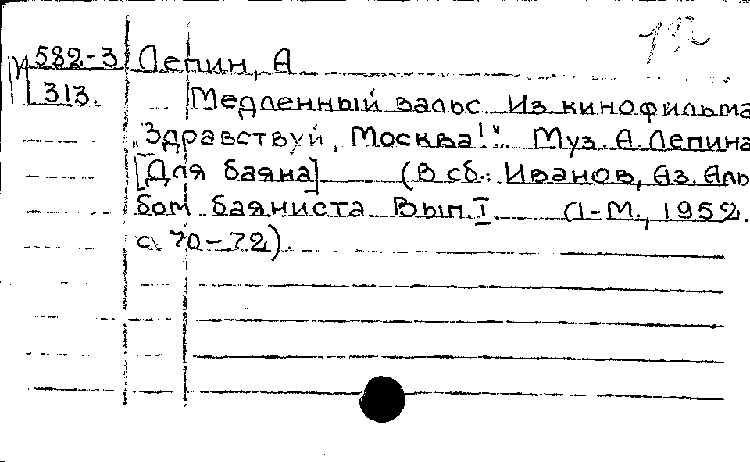 М582-3 Лепин, А
L313. Медленный вальс Из кинофильма
„Здравствуй, Москва!“. Муз. А. Лепина
[Для баяна] (В сб.: Иванов, Аз. Аль
бом баяниста Вып. I. Л-М., 1952.
с. 70-72).